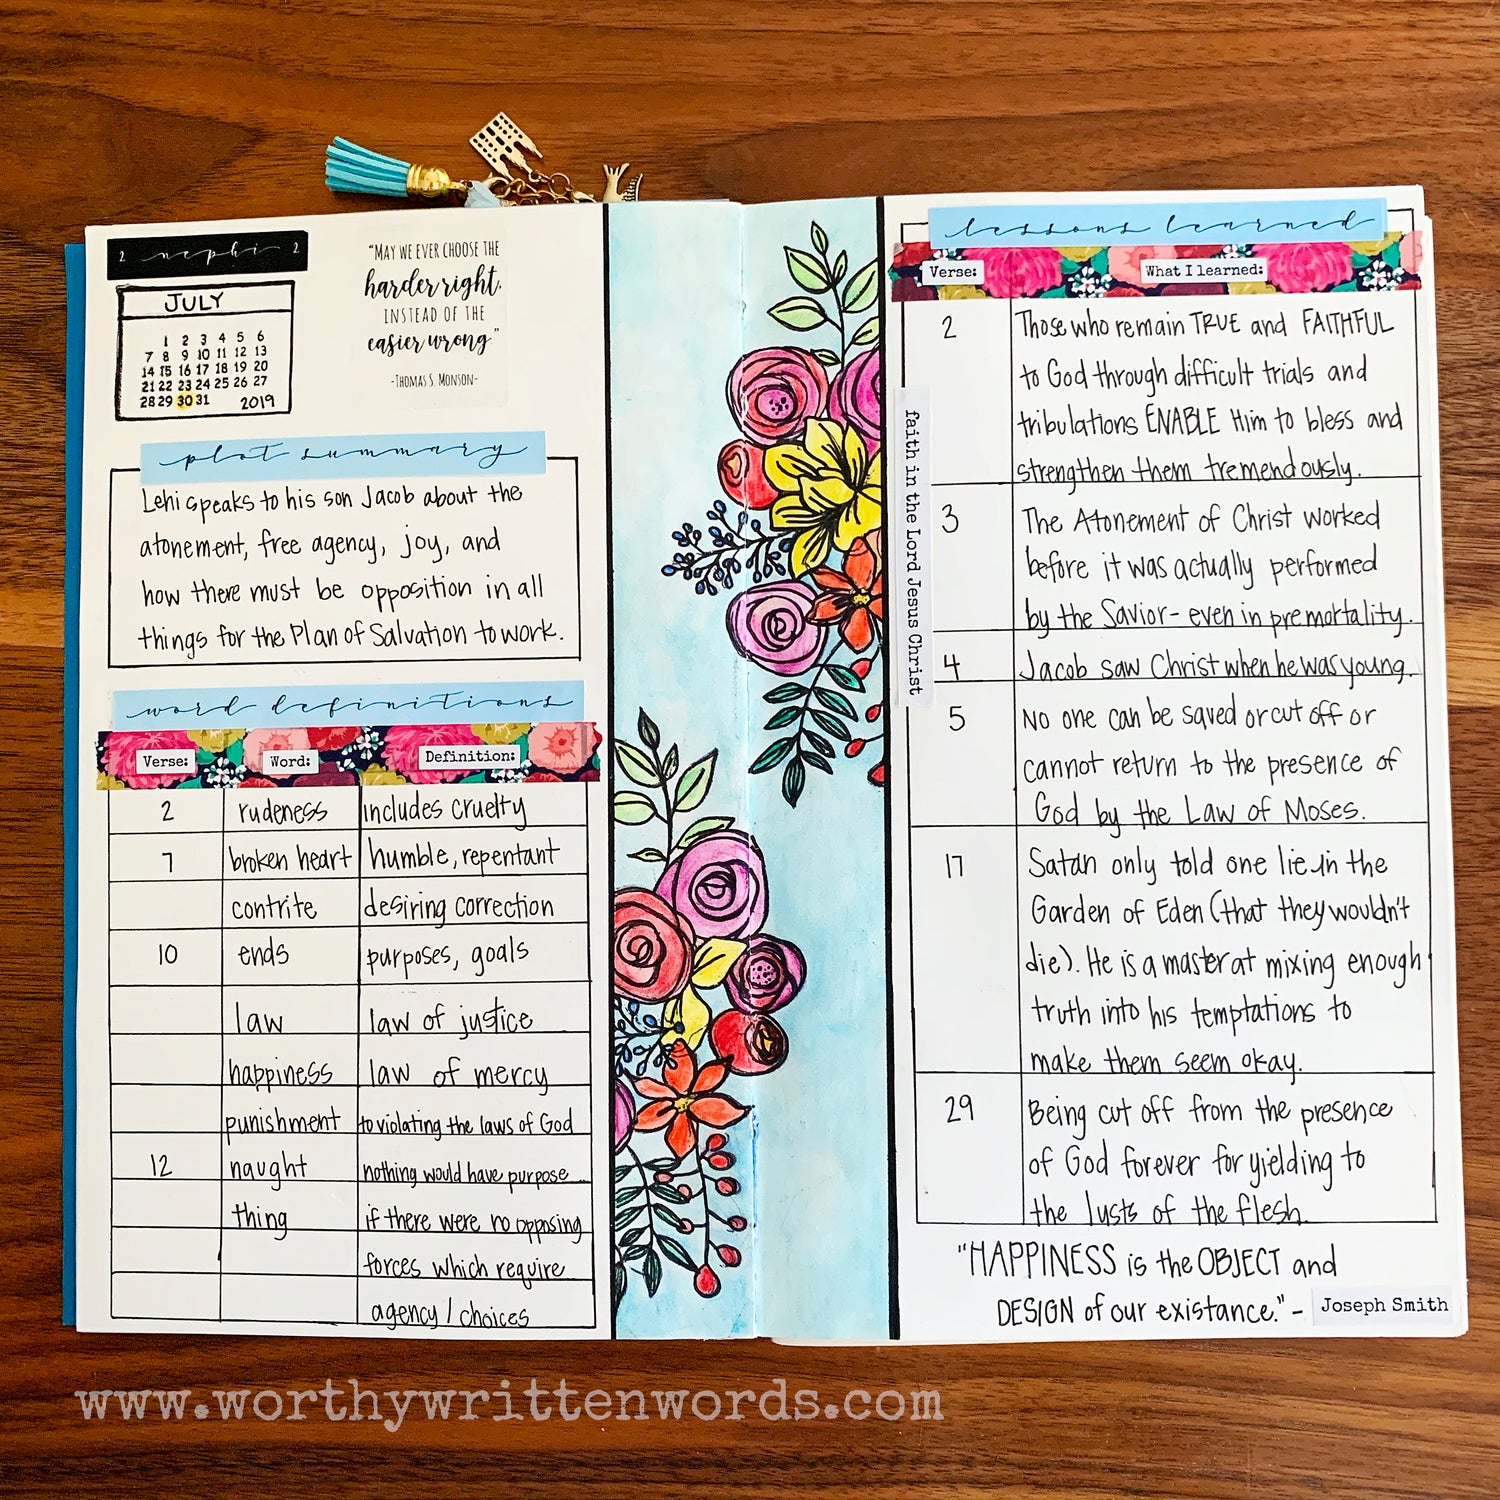 2 nephi 2
JULY
1 2 3 4 5 6
7 8 9 10 11 12 13
14 15 16 17 18 19 20
21 22 23 24 25 26 27
28 29 30 31 2019
"MAY WE EVER CHOOSE THE
harder right,
INSTEAD OF THE
easier wrong"
-THOMAS S. MONSON-
plot summary
Lehi speaks to his son Jacob about the
atonement, free agency, joy, and
how there must be opposition in all
things for the Plan of Salvation to work.
word definitions
Verse: Word: Definition:
2 rudeness includes cruelty
7 broken heart humble, repentant
contrite desiring correction
10 ends purposes, goals
law law of justice
happiness law of mercy
punishment to violating the laws of God
12 naught nothing would have purpose
thing if there were no opposing
forces which require
agency/choices
lessons learned
Verse: What I learned:
faith in the Lord Jesus Christ
2 Those who remain TRUE and FAITHFUL
to God through difficult trials and
tribulations ENABLE Him to bless and
strengthen them tremendously.
3 The Atonement of Christ worked
before it was actually performed
by the Savior - even in premortality.
4 Jacob saw Christ when he was young.
5 No one can be saved or cut off or
cannot return to the presence of
God by the Law of Moses.
17 Satan only told one lie in the
Garden of Eden (that they wouldn't
die). He is a master at mixing enough
truth into his temptations to
make them seem okay.
29 Being cut off from the presence
of God forever for yielding to
the lusts of the flesh.
"HAPPINESS is the OBJECT and
DESIGN of our existance." - Joseph Smith
www.worthywrittenwords.com